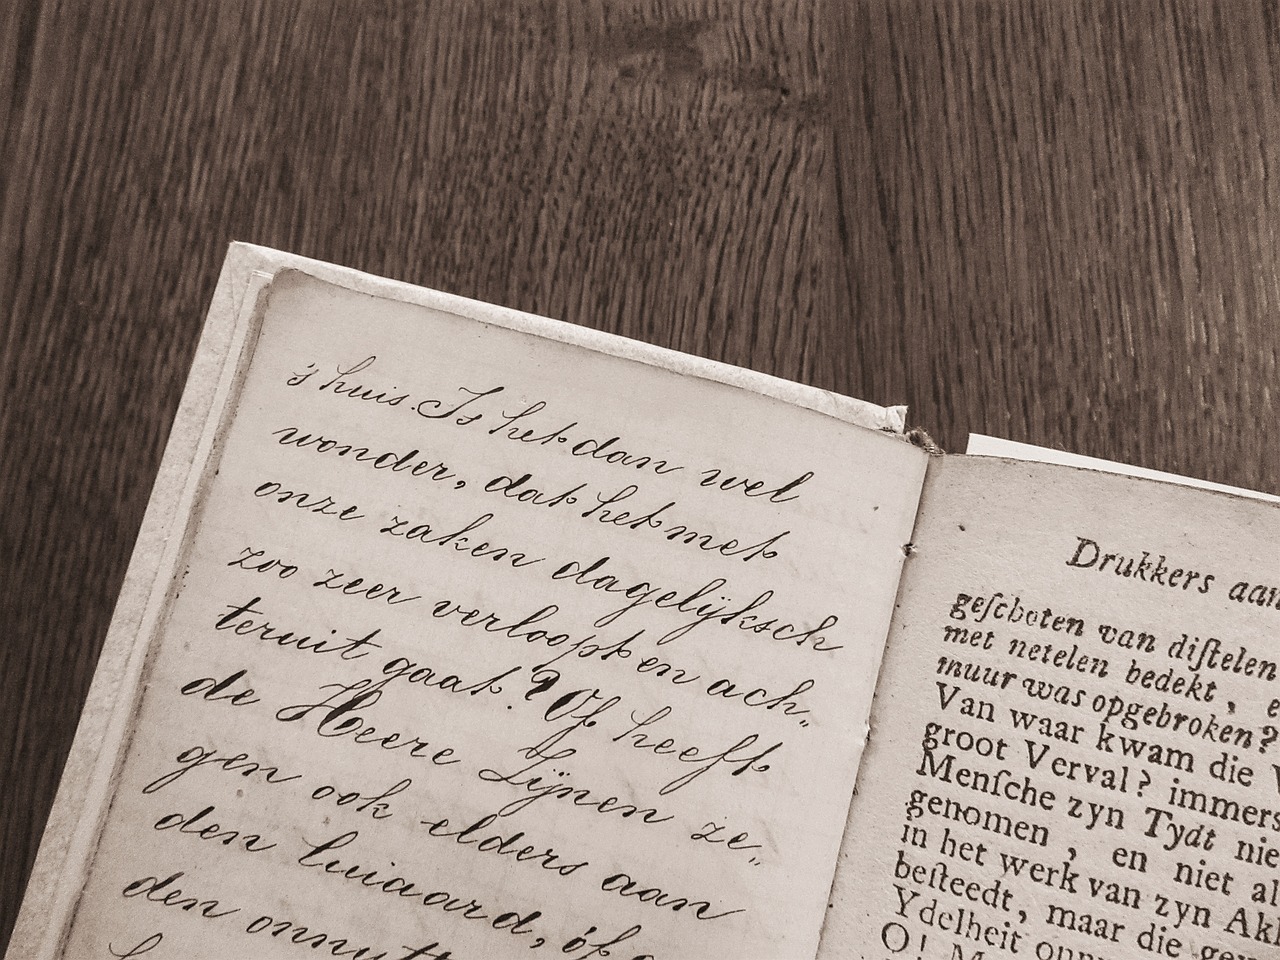 's huis. Is het dan wel
wonder, dat het met
onze zaken dagelijksch
zoo zeer verloopt en ach„
teruit gaat? Of heeft
de Heere Zijnen ze„
gen ook elders aan
den luiaard, óf
den
Drukkers aan
geſchoten van diſtelen
met netelen bedekt,
muur was opgebroken?
Van waar kwam die
groot Verval? immers
Menſche zyn Tydt
genomen, en niet
in het werk van zyn
beſteedt, maar die
Ydelheit
O!